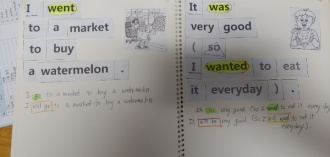 I went
to a market
to buy
a watermelon .
I go to a market to buy a watermelon.
I will go to a market to buy a watermelon.
It was
very good
( so
I wanted to eat
it everyday ) .
It is very good (so I want to eat it everyday).
It will be very good (so I will want to eat it everyday).